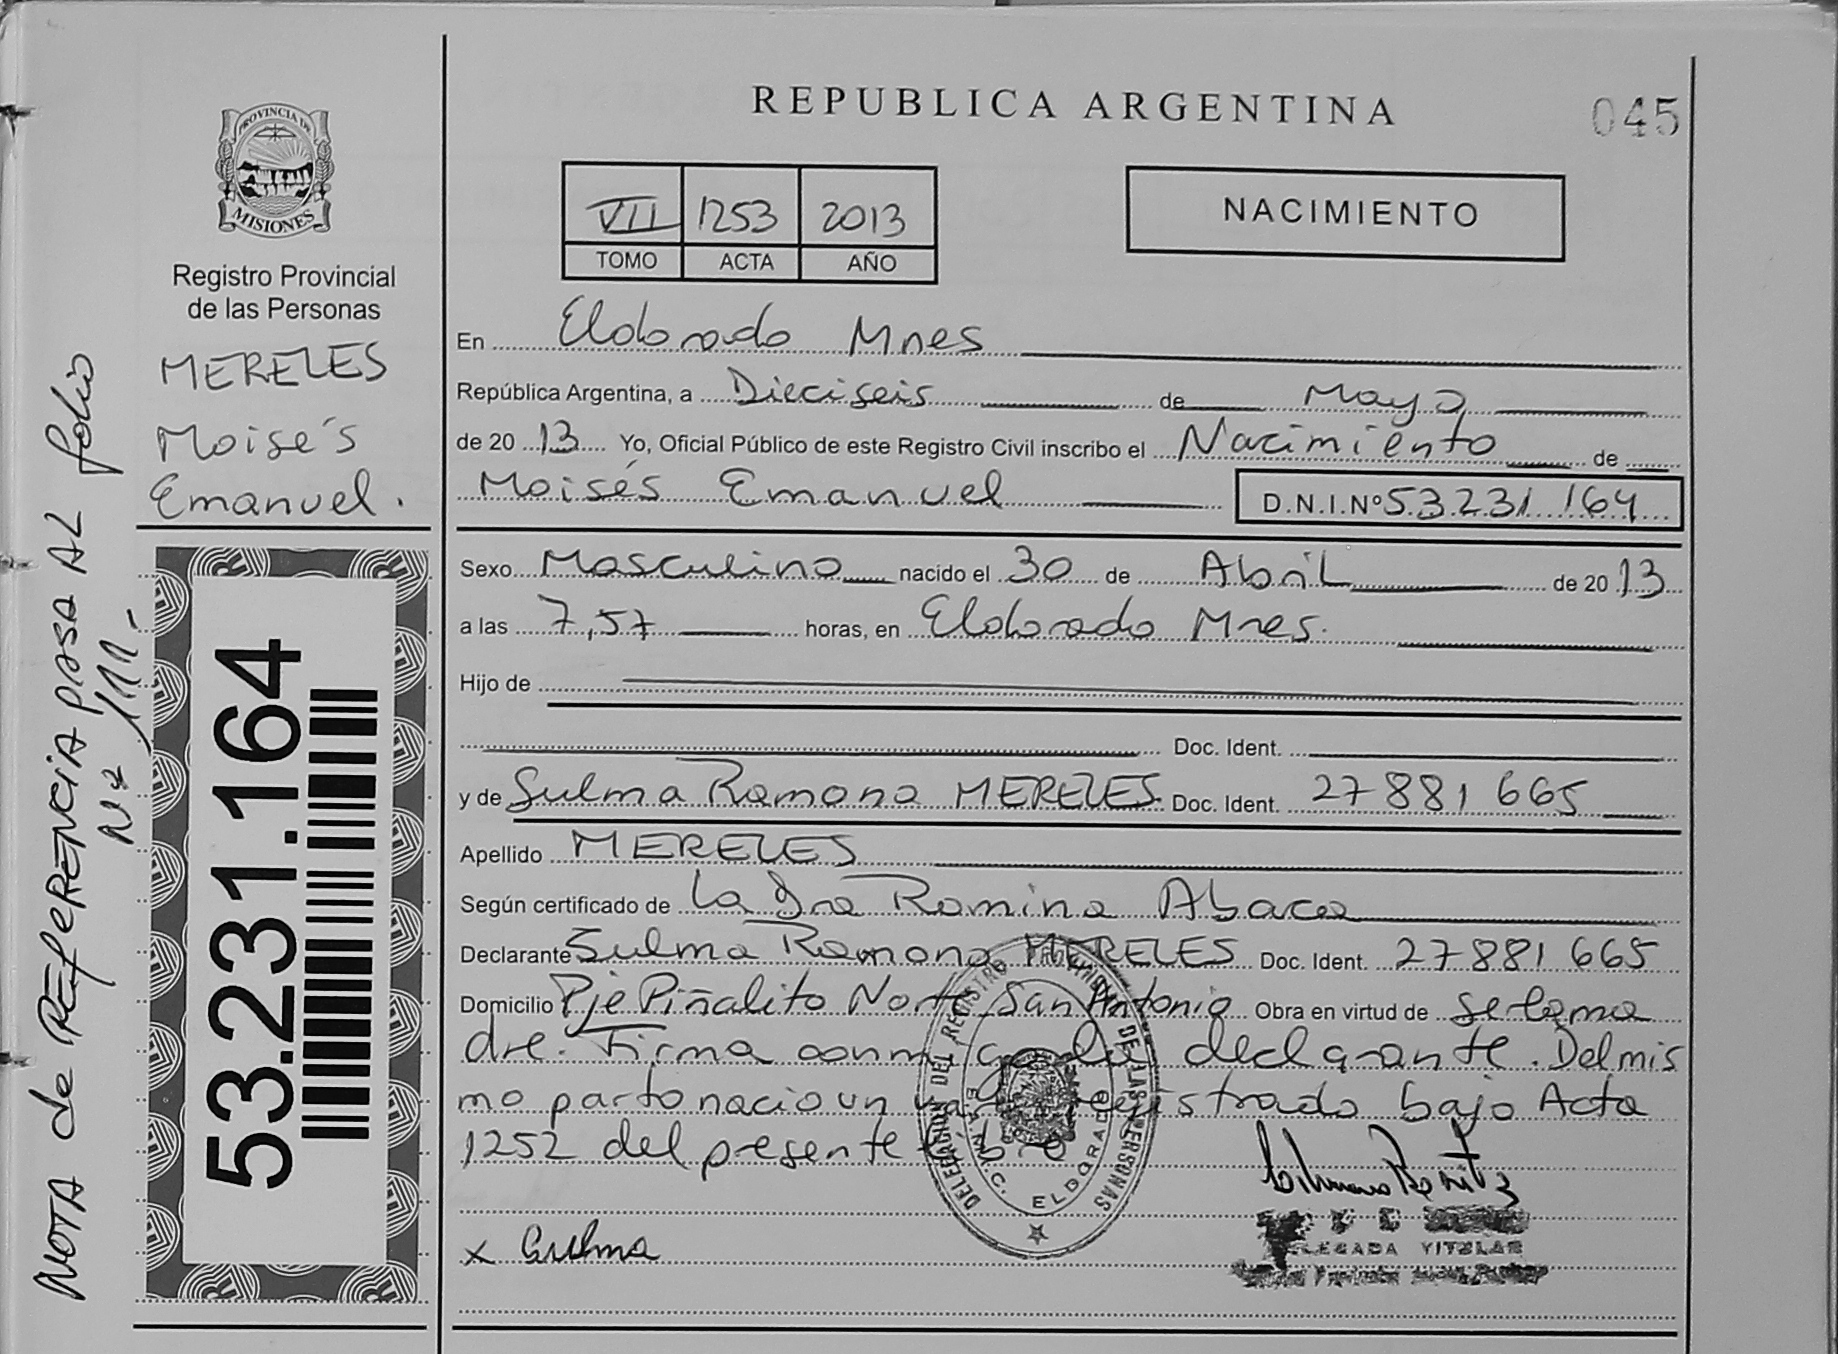 REPUBLICA ARGENTINA
045
PROVINCIA DE
MISIONES
Registro Provincial
de las Personas
MERELES
Moisés
Emanuel.
NOTA de REFERENCIA pasa AL folio
Nº 111-
53.231.164
VII 1253 2013
TOMO ACTA AÑO
NACIMIENTO
En Eldorado Mnes
República Argentina, a Dieciseis de Mayo
de 2013 Yo, Oficial Público de este Registro Civil inscribo el Nacimiento de
Moisés Emanuel D.N.I.Nº 53.231.164
Sexo Masculino nacido el 30 de Abril de 2013
a las 7,57 horas, en Eldorado Mnes.
Hijo de
Doc. Ident.
y de Sulma Ramona MERELES Doc. Ident. 27881665
Apellido MERELES
Según certificado de La Dra Romina Abaca
Declarante Sulma Ramona MERELES Doc. Ident. 27881665
Domicilio Pje Piñalito Norte San Antonio Obra en virtud de se la ma
dre. Firma conmigo la declarante. Del mis
mo parto nacio un registrado bajo Acta
1252 del presente Libro
DELEGACION DEL REGISTRO PROVINCIAL DE LAS PERSONAS
ELDORADO
x Sulma
DELEGADA TITULAR